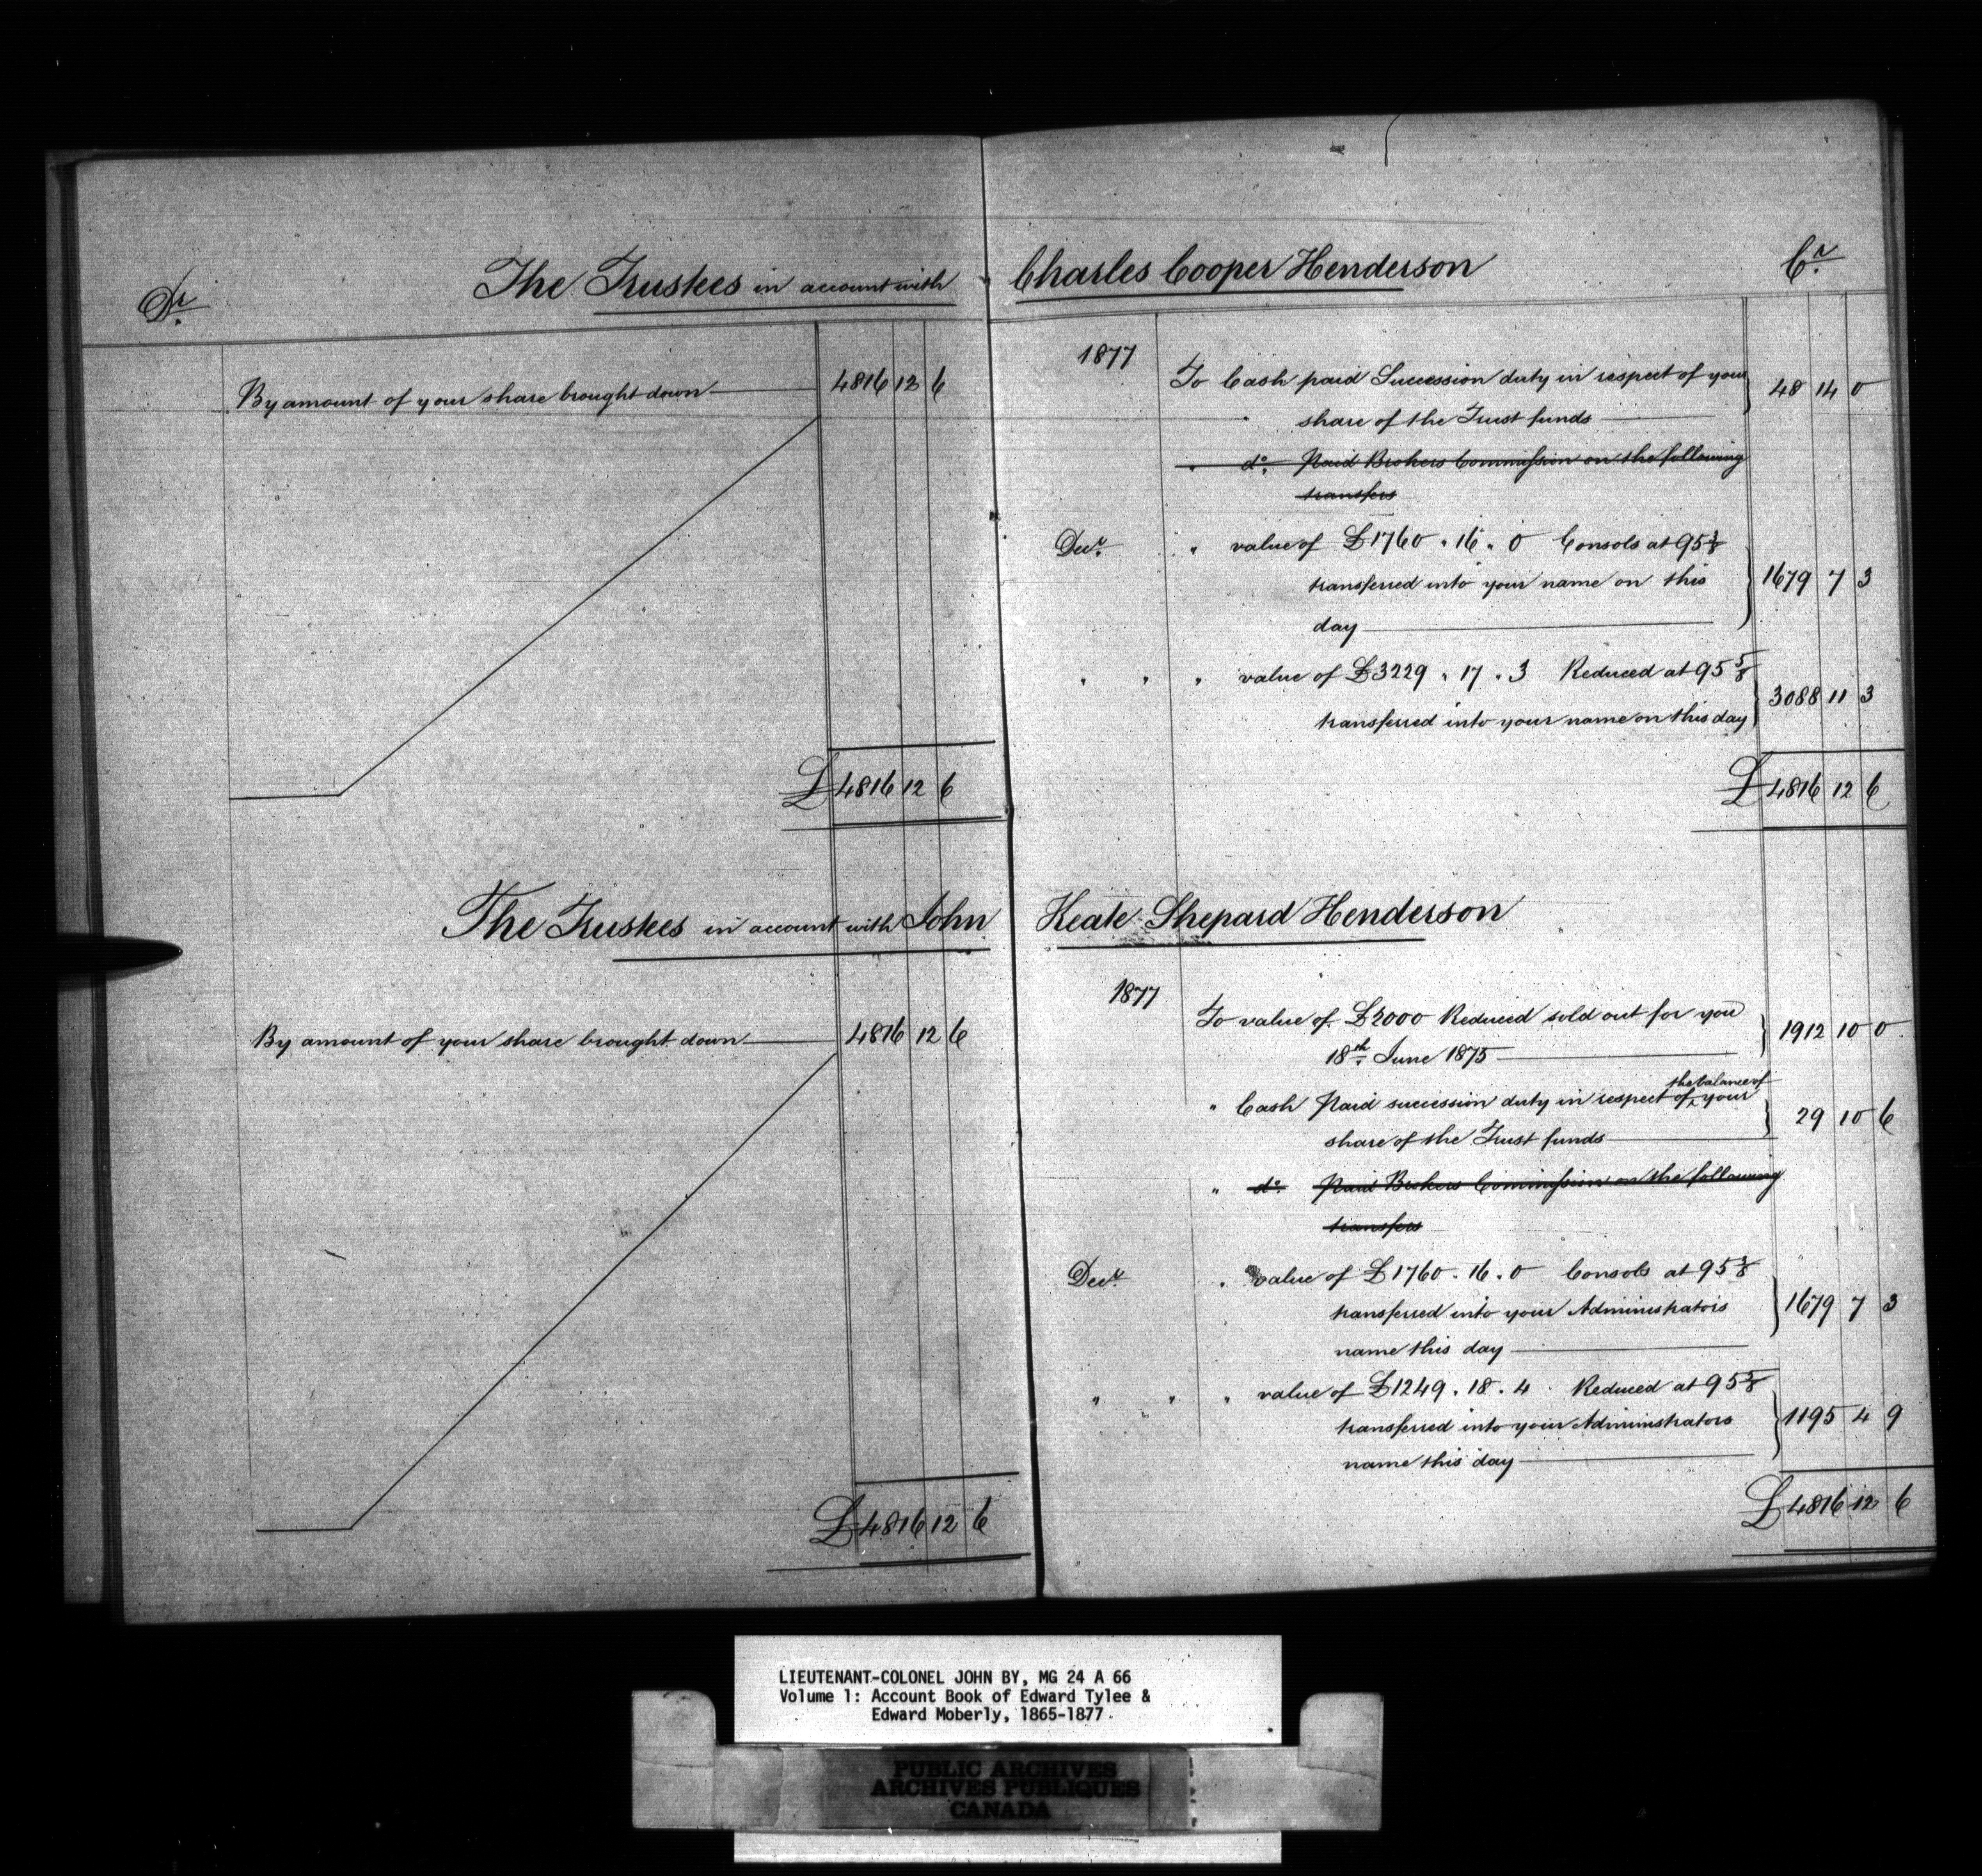 Dr.
The Trustees in account with Charles Cooper Henderson
Cr.
By amount of your share brought down 4816 12 6
£ 4816 12 6
1877
To Cash paid Succession duty in respect of your
share of the Trust funds 48 14 0
" do. Paid Brokers Commission on the following
transfers
Decr. " value of £1760 . 16 . 0 Consols at 95 3/8
transferred into your name on this
day 1679 7 3
" " " value of £3229 . 17 . 3 Reduced at 95 5/8
transferred into your name on this day 3088 11 3
£ 4816 12 6
The Trustees in account with John Keate Shepard Henderson
By amount of your share brought down 4816 12 6
£ 4816 12 6
1877
To value of £2000 Reduced sold out for you
18th June 1875 1912 10 0
the balance of
" Cash Paid succession duty in respect of ^ your
share of the Trust funds 29 10 6
" do. Paid Brokers Commission on the following
transfers
Decr. " value of £1760 . 16 . 0 Consols at 95 3/8
transferred into your Administrators
name this day 1679 7 3
" " " value of £1249 . 18 . 4 Reduced at 95 5/8
transferred into your Administrators
name this day 1195 4 9
£ 4816 12 6
LIEUTENANT-COLONEL JOHN BY, MG 24 A 66
Volume 1: Account Book of Edward Tylee &
Edward Moberly, 1865-1877.
PUBLIC ARCHIVES
ARCHIVES PUBLIQUES
CANADA